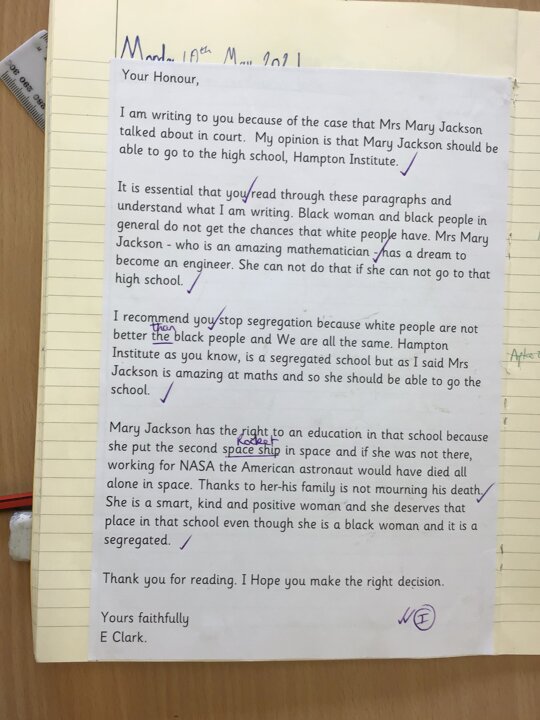 Monday 10th May 2021
Your Honour,
I am writing to you because of the case that Mrs Mary Jackson
talked about in court. My opinion is that Mary Jackson should be
able to go to the high school, Hampton Institute.
It is essential that you read through these paragraphs and
understand what I am writing. Black woman and black people in
general do not get the chances that white people have. Mrs Mary
Jackson - who is an amazing mathematician - has a dream to
become an engineer. She can not do that if she can not go to that
high school.
I recommend you stop segregation because white people are not
than
better the black people and We are all the same. Hampton
Institute as you know, is a segregated school but as I said Mrs
Jackson is amazing at maths and so she should be able to go the
school.
Mary Jackson has the right to an education in that school because
Rocket
she put the second space ship in space and if she was not there,
working for NASA the American astronaut would have died all
alone in space. Thanks to her-his family is not mourning his death.
She is a smart, kind and positive woman and she deserves that
place in that school even though she is a black woman and it is a
segregated.
Thank you for reading. I Hope you make the right decision.
Yours faithfully
I
E Clark.